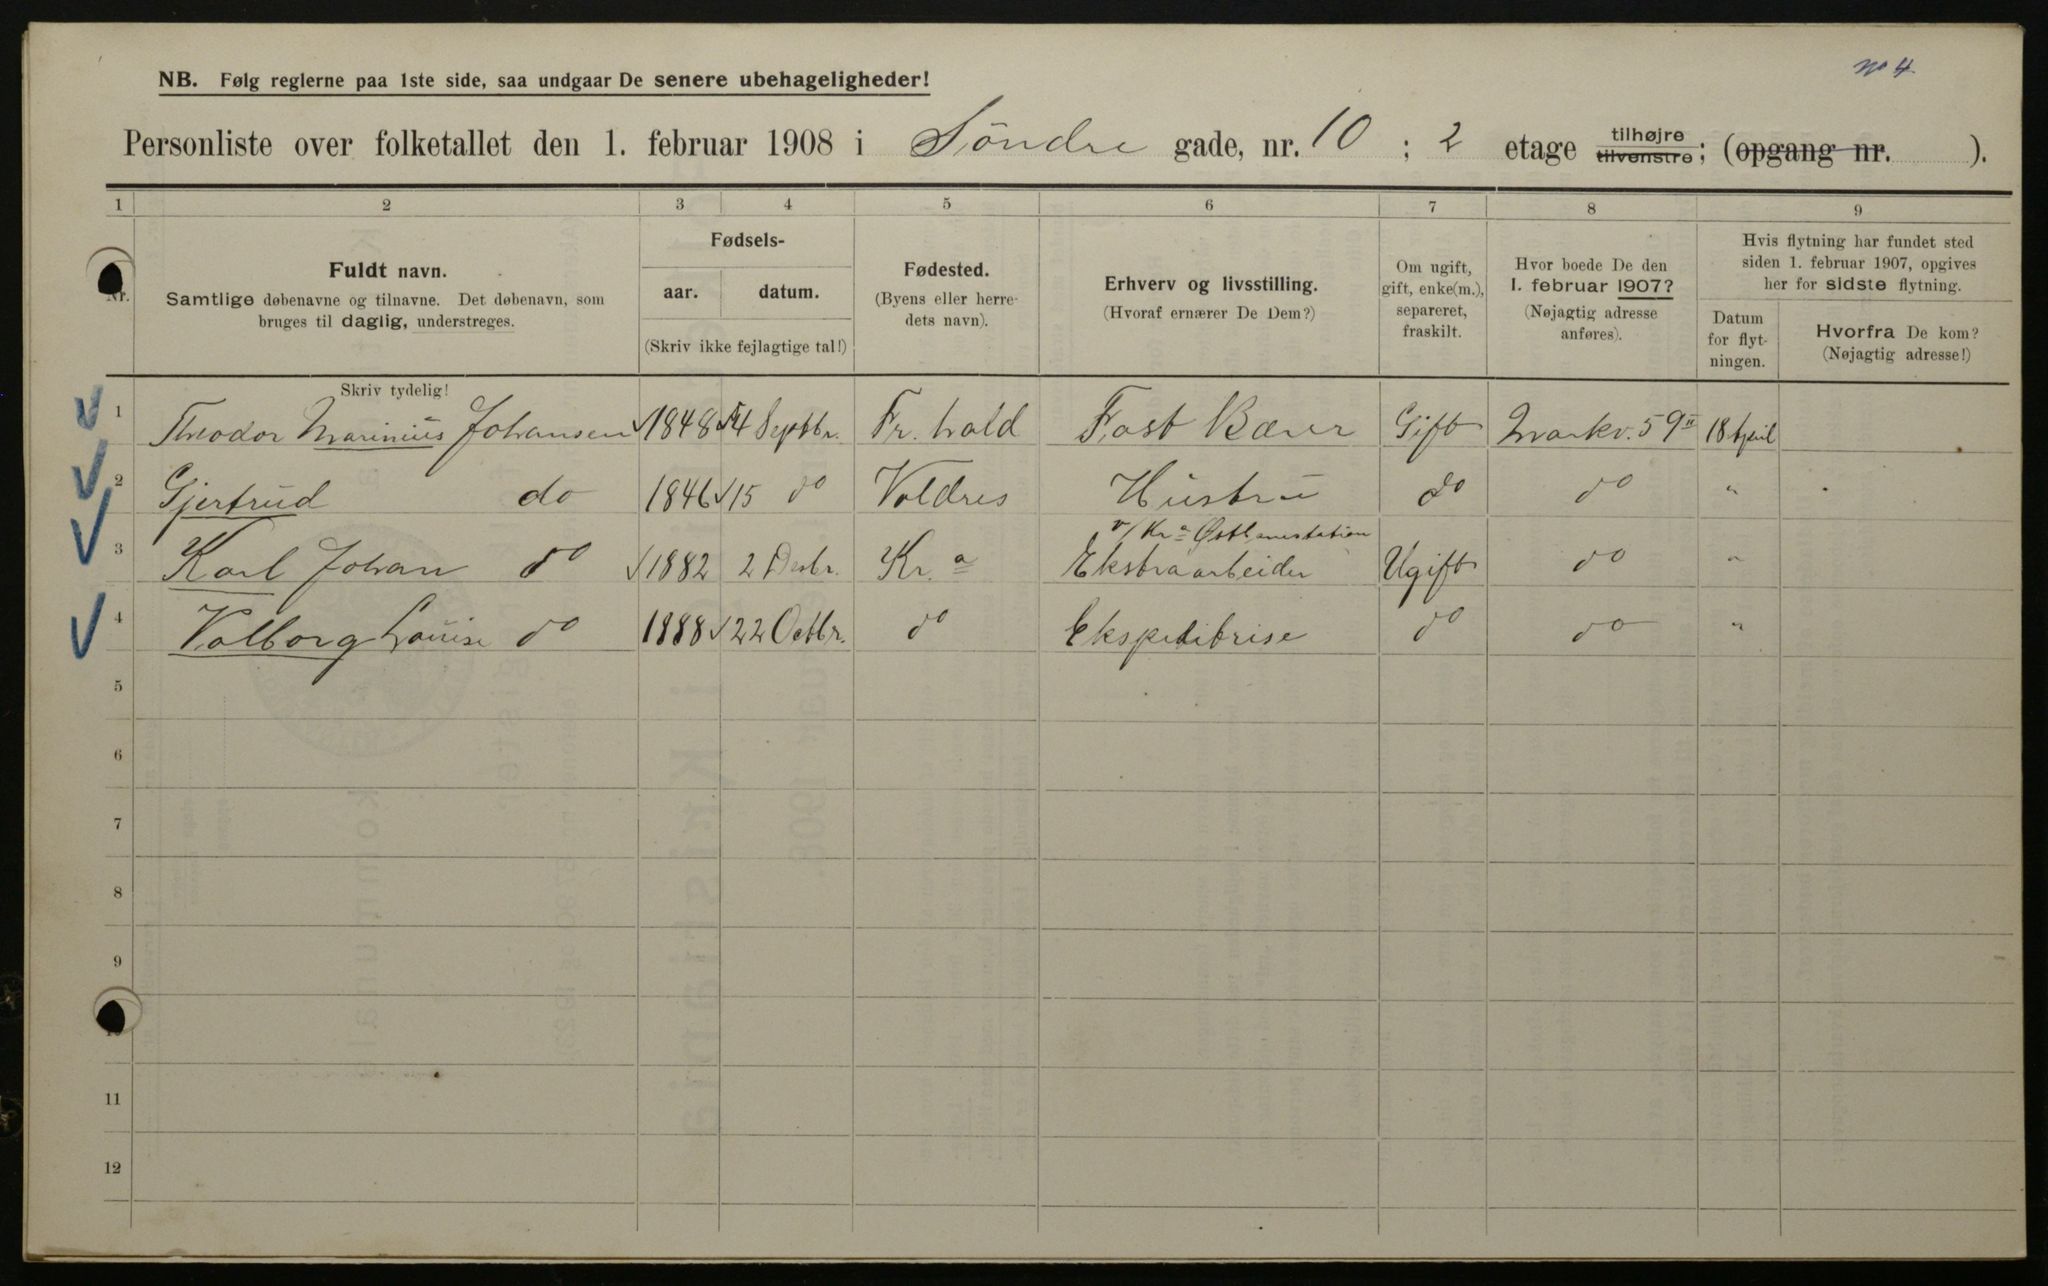 No 4
NB. Følg reglerne paa 1ste side, saa undgaar De senere ubehageligheder!
Personliste over folketallet den 1. februar 1908 i Söndre gade, nr. 10 ; 2 etage tilhøjre tilvenstre; (opgang nr. ).
1 2 3 4 5 6 7 8 9
Nr.
Fuldt navn.
Samtlige døbenavne og tilnavne. Det døbenavn, som
bruges til daglig, understreges.
Fødsels-
aar. datum.
(Skriv ikke fejlagtige tal!)
Fødested.
(Byens eller herre-
dets navn).
Erhverv og livsstilling.
(Hvoraf ernærer De Dem?)
Om ugift,
gift, enke(m.),
separeret,
fraskilt.
Hvor boede De den
1. februar 1907?
(Nøjagtig adresse
anføres).
Hvis flytning har fundet sted
siden 1. februar 1907, opgives
her for sidste flytning.
Datum
for flyt-
ningen.
Hvorfra De kom?
(Nøjagtig adresse!)
Skriv tydelig!
1 Theodor Marinius Johansen 1848 4 Septbr. Fr. hald Fast Bærer Gift Markv. 59 II 18 April
2 Gjertrud do 1846 15 do Valdres Hustru do do "
v/ Kr.a Østbanestation
3 Karl Johan do 1882 2 Desbr. Kr.a Ekstraarbeider Ugift do "
4 Valborg Louise do 1888 22 Octbr. do Ekspeditrise do do "
5
6
7
8
9
10
11
12